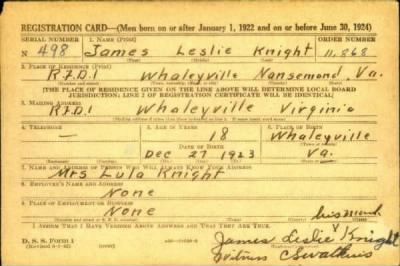 REGISTRATION CARD—(Men born on or after January 1, 1922 and on or before June 30, 1924)
SERIAL NUMBER 1. NAME (Print) ORDER NUMBER
N 498 James Leslie Knight 11,868
2. PLACE OF RESIDENCE (Print)
R.F.D.1 Whaleyville Nansemond Va.
[THE PLACE OF RESIDENCE GIVEN ON THE LINE ABOVE WILL DETERMINE LOCAL BOARD
JURISDICTION; LINE 2 OF REGISTRATION CERTIFICATE WILL BE IDENTICAL]
3. MAILING ADDRESS
R.F.D.1 Whaleyville Virginia
4. TELEPHONE 5. AGE IN YEARS 6. PLACE OF BIRTH
— 18 Whaleyville
DATE OF BIRTH
Dec 27 1923 Va.
7. NAME AND ADDRESS OF PERSON WHO WILL ALWAYS KNOW YOUR ADDRESS
Mrs Lula Knight
8. EMPLOYER'S NAME AND ADDRESS
None
9. PLACE OF EMPLOYMENT OR BUSINESS
None his mark
I AFFIRM THAT I HAVE VERIFIED ABOVE ANSWERS AND THAT THEY ARE TRUE.
D. S. S. Form 1 James Leslie X Knight
Witness